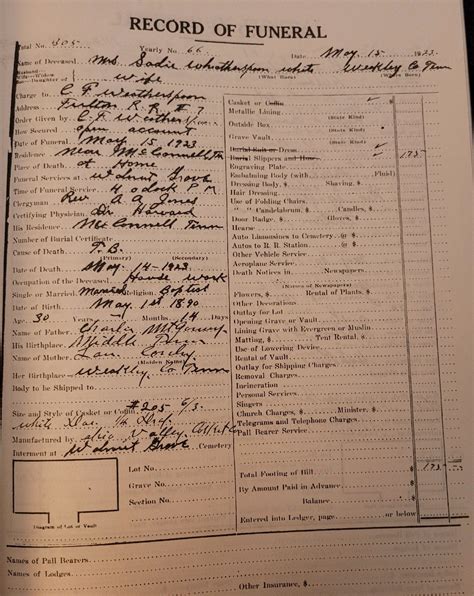 RECORD OF FUNERAL
Total No. 805 Yearly No. 66 Date May 15 1923
Name of Deceased Mrs Sadie Whotherspoon white Weekley Co Tenn
Husband Wife Widow
Son Daughter of Wife (What Born) (Where Born)
Charge to C. F. Weatherspoon
Address Fulton R R # 7
Order Given by C. F. Weatherspoon
How Secured open account
Date of Funeral May 15 1923
Residence Near McConnell Tn
Place of Death at Home
Funeral Services at Walnut Grove
Time of Funeral Service 4 oclock P M
Clergyman Rev A A Jones
Certifying Physician Dr Howard
His Residence McConnell Tenn
Number of Burial Certificate
Cause of Death T. B.
(Primary) (Secondary)
Date of Death May 14 - 1923
Occupation of the Deceased House work
Single or Married Married Religion Baptist
Date of Birth May 1st 1890
Age 30 Years Months 14 Days
Name of Father Charlie
His Birthplace Middle Tenn
Name of Mother
(Maiden Name)
Her Birthplace Weakley Co Tenn
Body to be Shipped to
Size and Style of Casket or Coffin #205 6/3
white
Manufactured by Ohio Valley
Interment at Walnut Grove Cemetery
Lot No.
Grave No.
Section No.
Diagram of Lot or Vault
Casket or Coffin
Metallic Lining
(State Kind)
Outside Box
(State Kind)
Grave Vault
(State Kind)
Burial Suit or Dress
Burial Slippers and Hose 175
Engraving Plate
Embalming Body (with Fluid)
Dressing Body, $ Shaving, $
Hair Dressing
Use of Folding Chairs
" " Candelabrum, $ Candles, $
Door Badge, $ Gloves, $
Hearse
Auto Limousines to Cemetery @ $
Autos to R. R. Station @ $
Other Vehicle Service
Aeroplane Service
Death Notices in Newspapers
(Notices of Newspapers)
Flowers, $ Rental of Plants, $
Other Decorations
Outlay for Lot
Opening Grave or Vault
Lining Grave with Evergreen or Muslin
Matting, $ Tent Rental, $
Use of Lowering Device
Rental of Vault
Outlay for Shipping Charges
Removal Charges
Incineration
Personal Services
Singers
Church Charges, $ Minister, $
Telegrams and Telephone Charges
Pall Bearer Service
Total Footing of Bill 175
By Amount Paid in Advance
Balance
Entered into Ledger, page or below
Names of Pall Bearers
Names of Lodges
Other Insurance, $